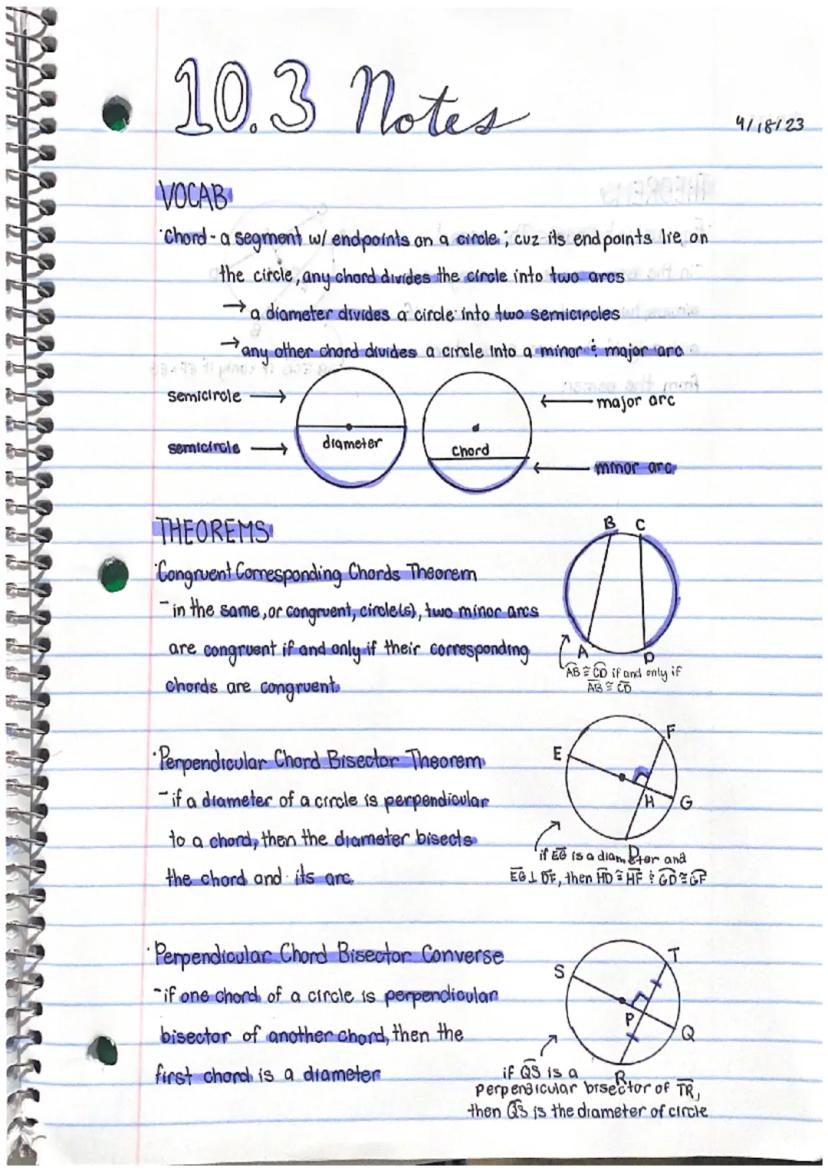 10.3 Notes
4/18/23
VOCAB
·Chord - a segment w/ endpoints on a circle; cuz its endpoints lie on
the circle, any chord divides the circle into two arcs
→ a diameter divides a circle into two semicircles
→ any other chord divides a circle into a minor & major arc
semicircle →
semicircle →
diameter
chord
← major arc
← minor arc
THEOREMS
·Congruent Corresponding Chords Theorem
- in the same, or congruent, circle(s), two minor arcs
are congruent if and only if their corresponding
chords are congruent
B C
A D
AB ≅ CD if and only if
AB ≅ CD
·Perpendicular Chord Bisector Theorem
- if a diameter of a circle is perpendicular
to a chord, then the diameter bisects
the chord and its arc
E F
H G
D
if EG is a diameter and
EG ⊥ DF, then HD ≅ HF & GD ≅ GF
·Perpendicular Chord Bisector Converse
- if one chord of a circle is perpendicular
bisector of another chord, then the
first chord is a diameter
S T
P Q
R
if QS is a
perpendicular bisector of TR,
then QS is the diameter of circle